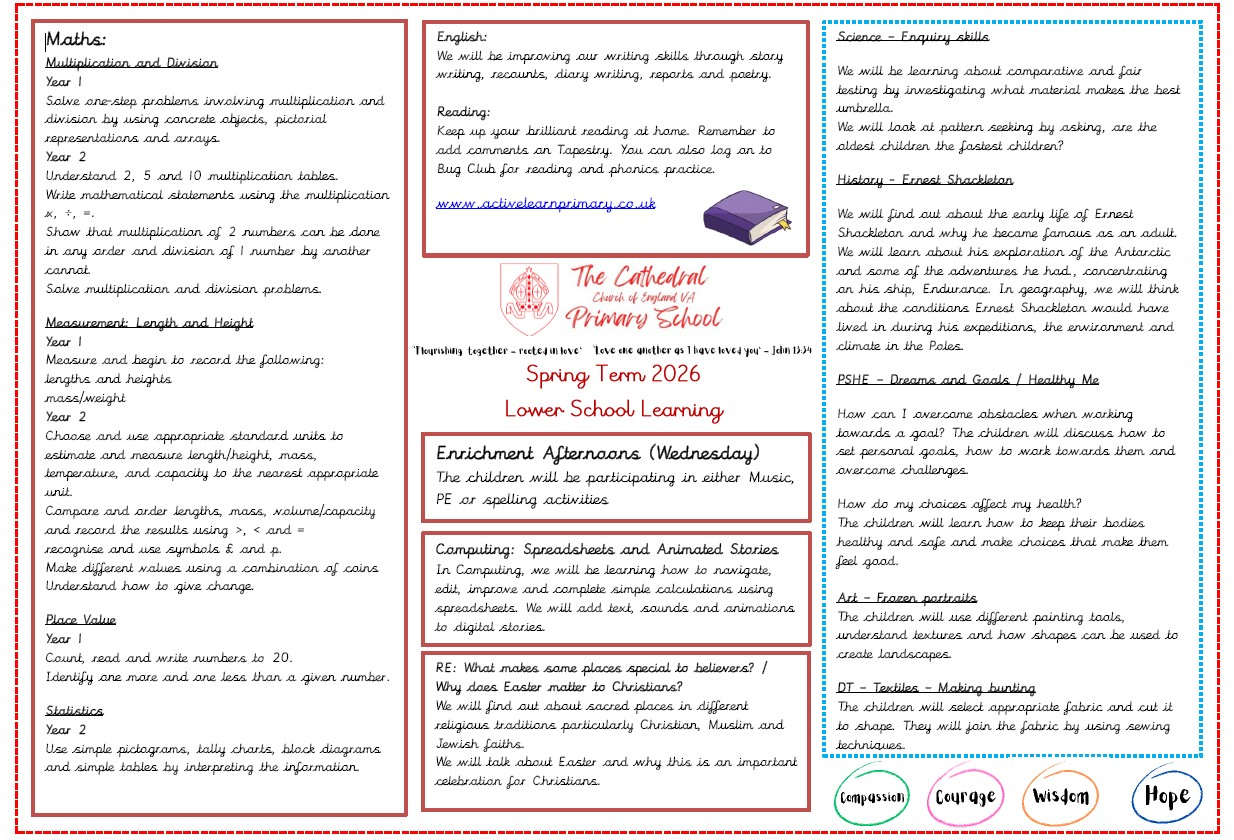 Maths:
Multiplication and Division
Year 1
Solve one-step problems involving multiplication and
division by using concrete objects, pictorial
representations and arrays.
Year 2
Understand 2, 5 and 10 multiplication tables.
Write mathematical statements using the multiplication
x, ÷, =.
Show that multiplication of 2 numbers can be done
in any order and division of 1 number by another
cannot.
Solve multiplication and division problems.
Measurement: Length and Height
Year 1
Measure and begin to record the following:
lengths and heights
mass/weight
Year 2
Choose and use appropriate standard units to
estimate and measure length/height, mass,
temperature, and capacity to the nearest appropriate
unit.
Compare and order lengths, mass, volume/capacity
and record the results using >, < and =
recognise and use symbols £ and p.
Make different values using a combination of coins
Understand how to give change.
Place Value
Year 1
Count, read and write numbers to 20.
Identify one more and one less than a given number.
Statistics
Year 2
Use simple pictograms, tally charts, block diagrams
and simple tables by interpreting the information.
English:
We will be improving our writing skills through story
writing, recounts, diary writing, reports and poetry.
Reading:
Keep up your brilliant reading at home. Remember to
add comments on Tapestry. You can also log on to
Bug Club for reading and phonics practice.
www.activelearnprimary.co.uk
The Cathedral
Church of England VA
Primary School
'Flourishing together - rooted in love' 'Love one another as I have loved you' - John 13:34
Spring Term 2026
Lower School Learning
Enrichment Afternoons (Wednesday)
The children will be participating in either Music,
PE or spelling activities
Computing: Spreadsheets and Animated Stories
In Computing, we will be learning how to navigate,
edit, improve and complete simple calculations using
spreadsheets. We will add text, sounds and animations
to digital stories.
RE: What makes some places special to believers? /
Why does Easter matter to Christians?
We will find out about sacred places in different
religious traditions particularly Christian, Muslim and
Jewish faiths.
We will talk about Easter and why this is an important
celebration for Christians.
Science - Enquiry skills
We will be learning about comparative and fair
testing by investigating what material makes the best
umbrella.
We will look at pattern seeking by asking, are the
oldest children the fastest children?
History - Ernest Shackleton
We will find out about the early life of Ernest
Shackleton and why he became famous as an adult.
We will learn about his exploration of the Antarctic
and some of the adventures he had, concentrating
on his ship, Endurance. In geography, we will think
about the conditions Ernest Shackleton would have
lived in during his expeditions, the environment and
climate in the Poles.
PSHE - Dreams and Goals / Healthy Me
How can I overcome obstacles when working
towards a goal? The children will discuss how to
set personal goals, how to work towards them and
overcome challenges.
How do my choices affect my health?
The children will learn how to keep their bodies
healthy and safe and make choices that make them
feel good.
Art - Frozen portraits
The children will use different painting tools,
understand textures and how shapes can be used to
create landscapes.
DT - Textiles - Making bunting
The children will select appropriate fabric and cut it
to shape. They will join the fabric by using sewing
techniques.
Compassion Courage Wisdom Hope